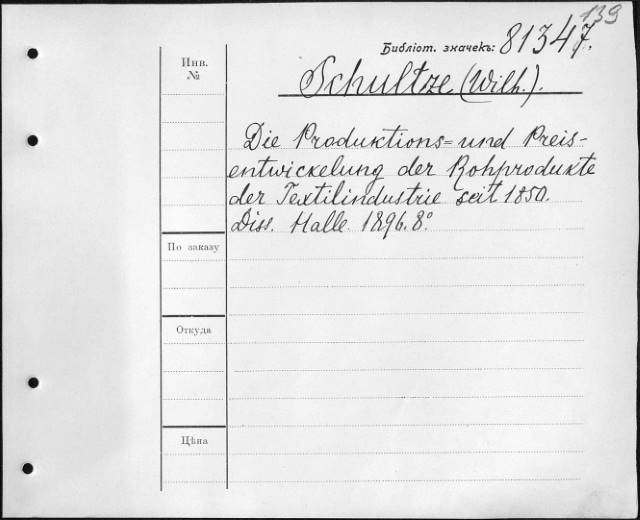 139
Библіот. значекъ: 81347.
Инв.
№
Schultze (Wilh.).
Die Produktions= und Preis-
entwickelung der Rohprodukte
der Textilindustrie seit 1850.
Diss. Halle. 1896. 8°
По заказу
Откуда
Цѣна